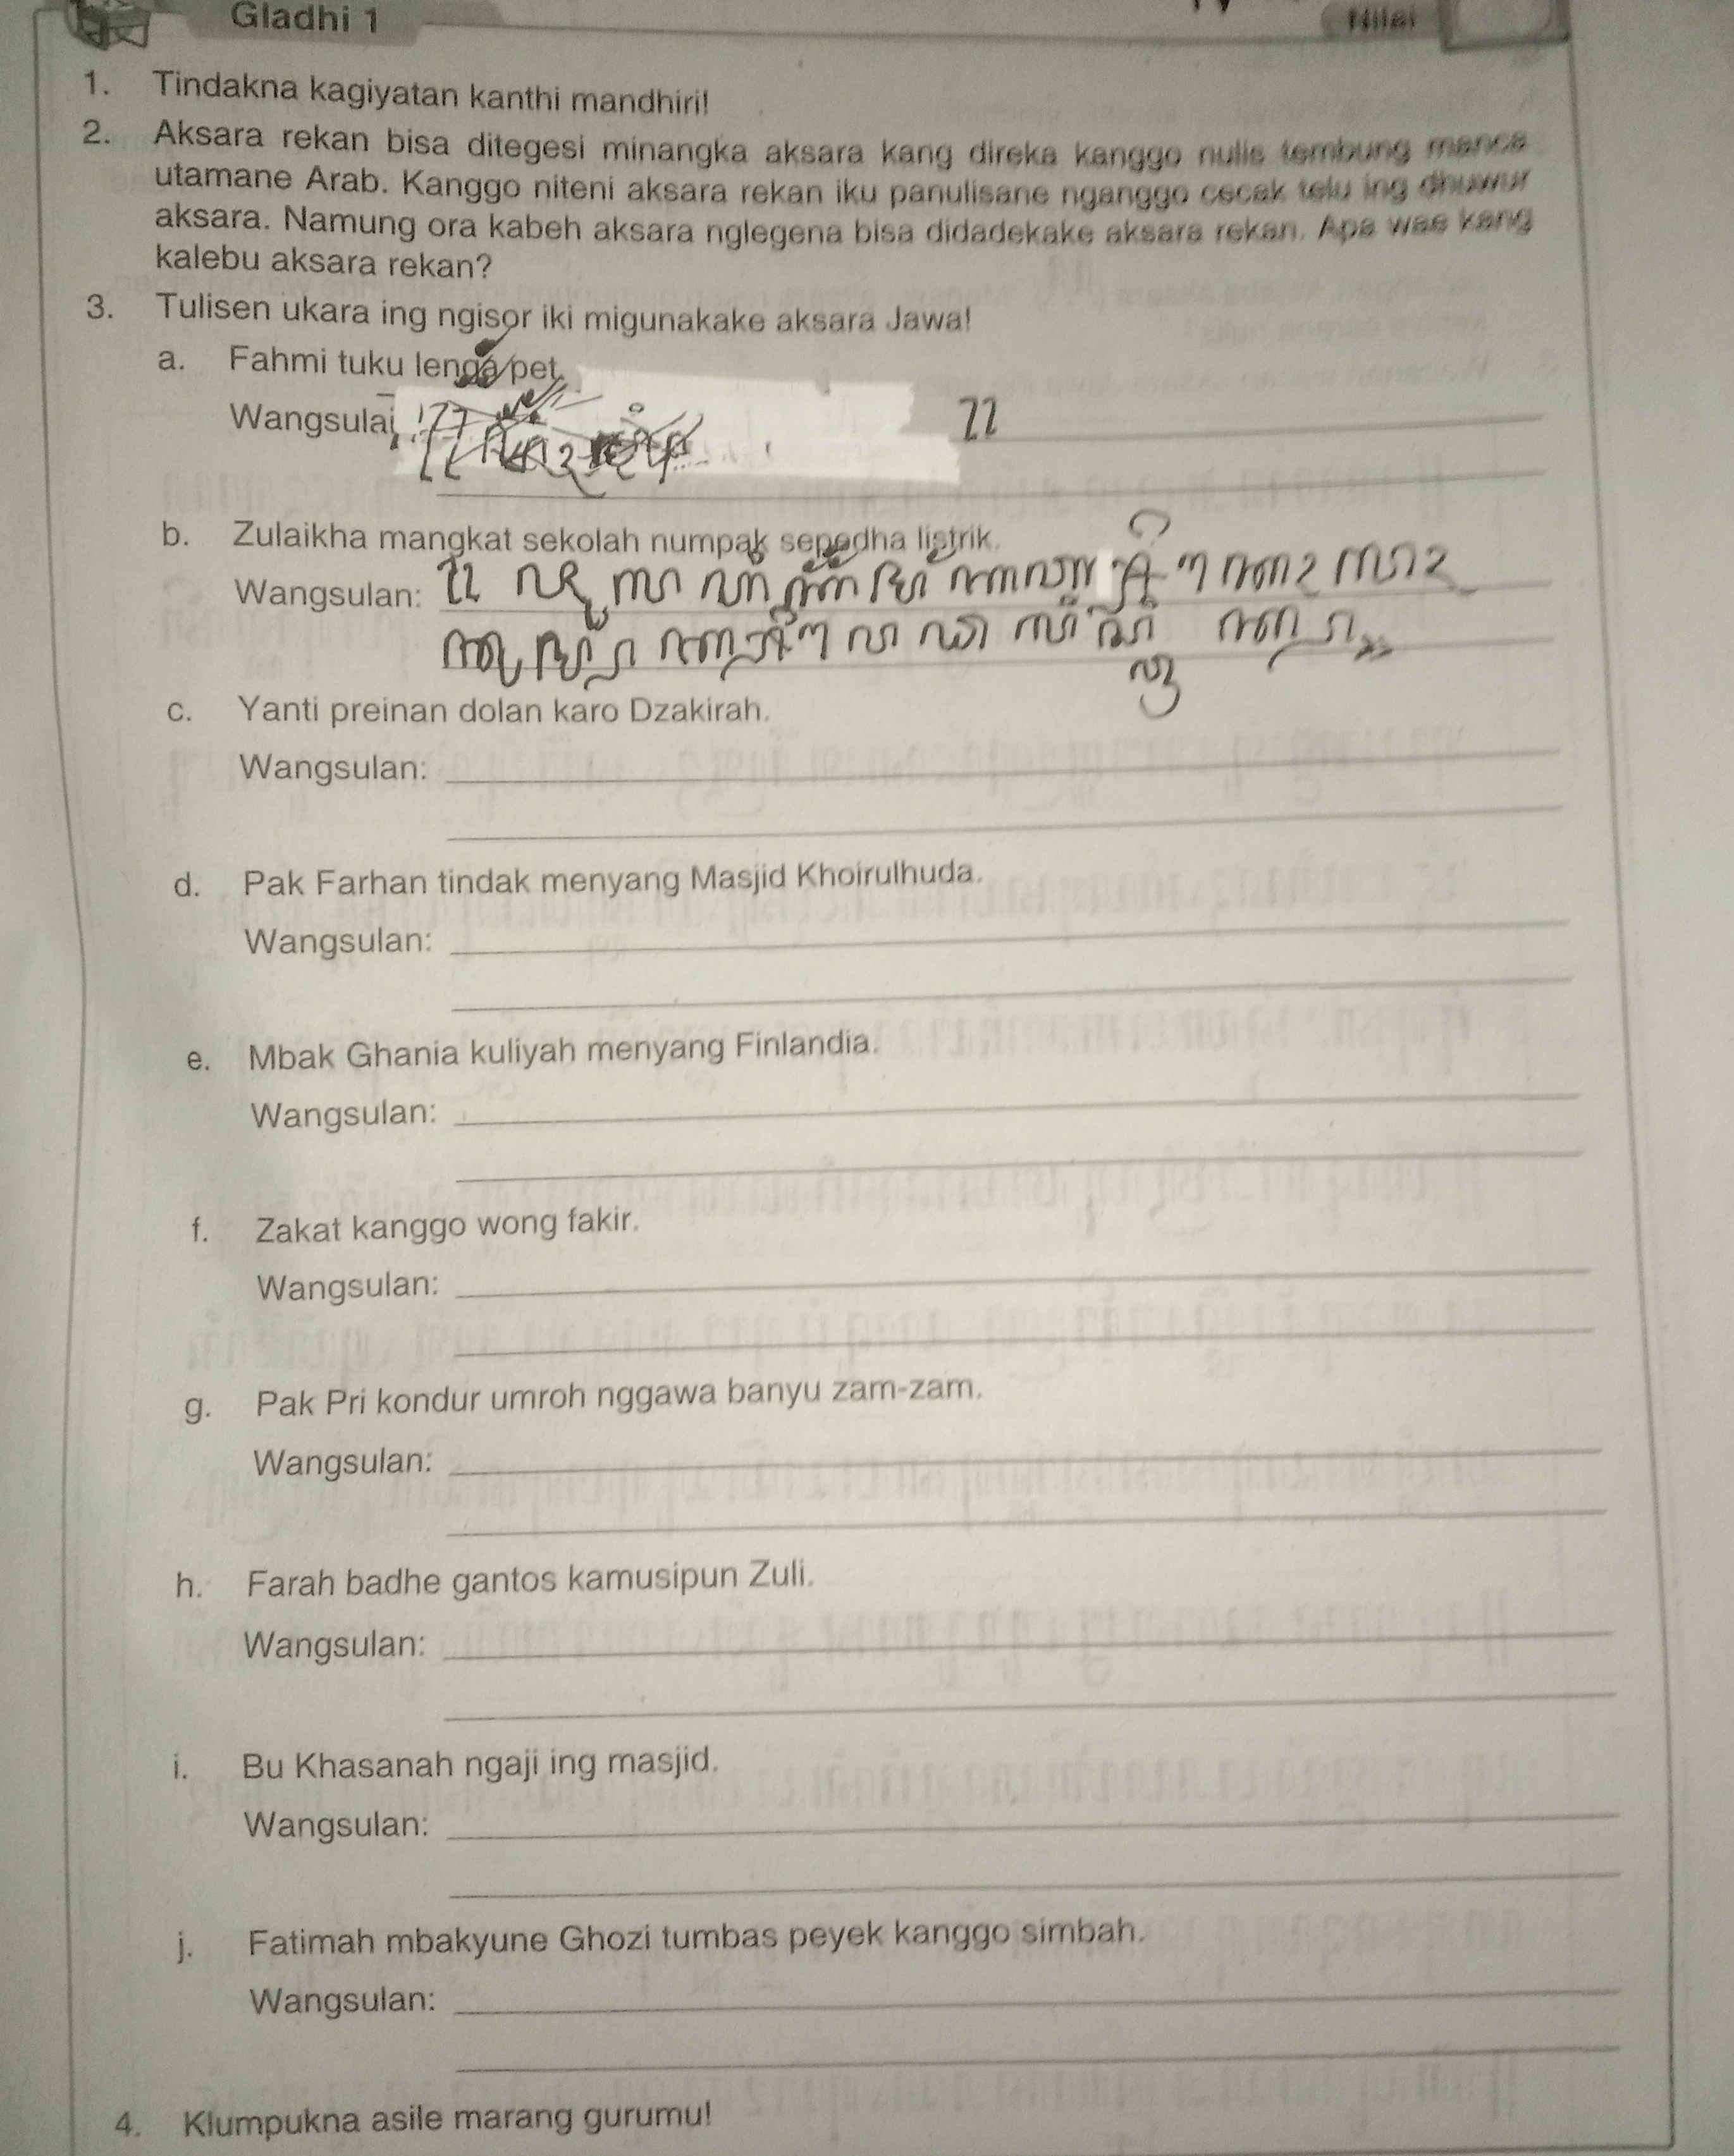 Gladhi 1
Nilai
1. Tindakna kagiyatan kanthi mandhiri!
2. Aksara rekan bisa ditegesi minangka aksara kang direka kanggo nulis tembung manca
utamane Arab. Kanggo niteni aksara rekan iku panulisane nganggo cecak telu ing dhuwur
aksara. Namung ora kabeh aksara nglegena bisa didadekake aksara rekan. Apa wae kang
kalebu aksara rekan?
3. Tulisen ukara ing ngisor iki migunakake aksara Jawa!
a. Fahmi tuku lenga pet.
b. Zulaikha mangkat sekolah numpak sepedha listrik.
Wangsulan:
c. Yanti preinan dolan karo Dzakirah.
Wangsulan:
d. Pak Farhan tindak menyang Masjid Khoirulhuda.
Wangsulan:
e. Mbak Ghania kuliyah menyang Finlandia.
Wangsulan:
f. Zakat kanggo wong fakir.
Wangsulan:
g. Pak Pri kondur umroh nggawa banyu zam-zam.
Wangsulan:
h. Farah badhe gantos kamusipun Zuli.
Wangsulan:
i. Bu Khasanah ngaji ing masjid.
Wangsulan:
j. Fatimah mbakyune Ghozi tumbas peyek kanggo simbah.
Wangsulan:
4. Klumpukna asile marang gurumu!